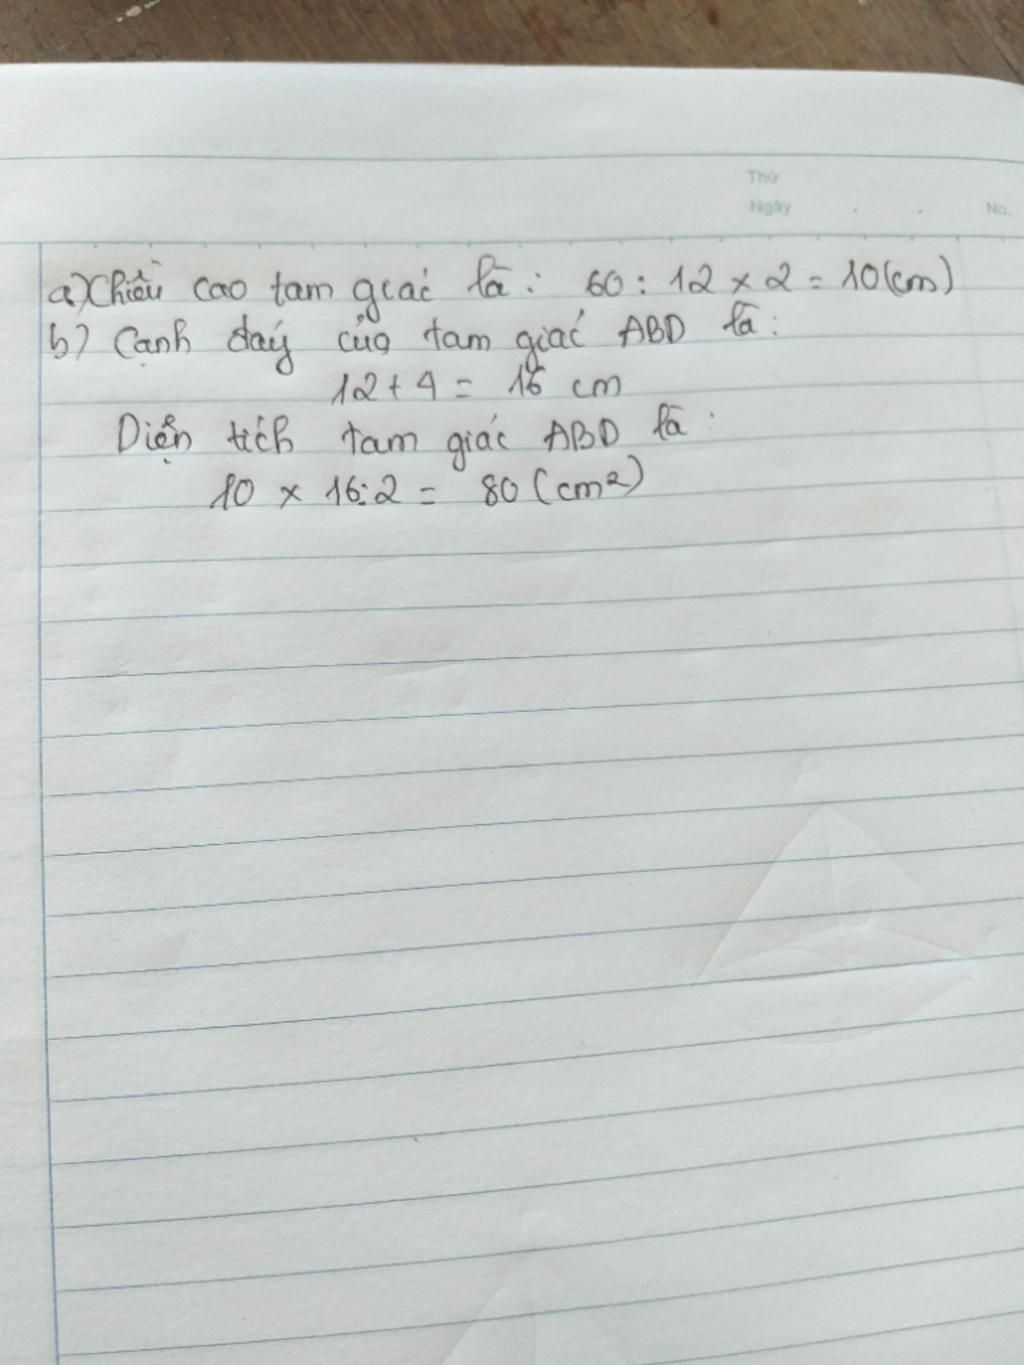 Thứ
Ngày . . No.
a) Chiều cao tam giác là: 60 : 12 x 2 = 10 (cm)
b) Cạnh đáy của tam giác ABD là:
12 + 4 = 16 cm
Diện tích tam giác ABD là:
10 x 16 : 2 = 80 (cm²)